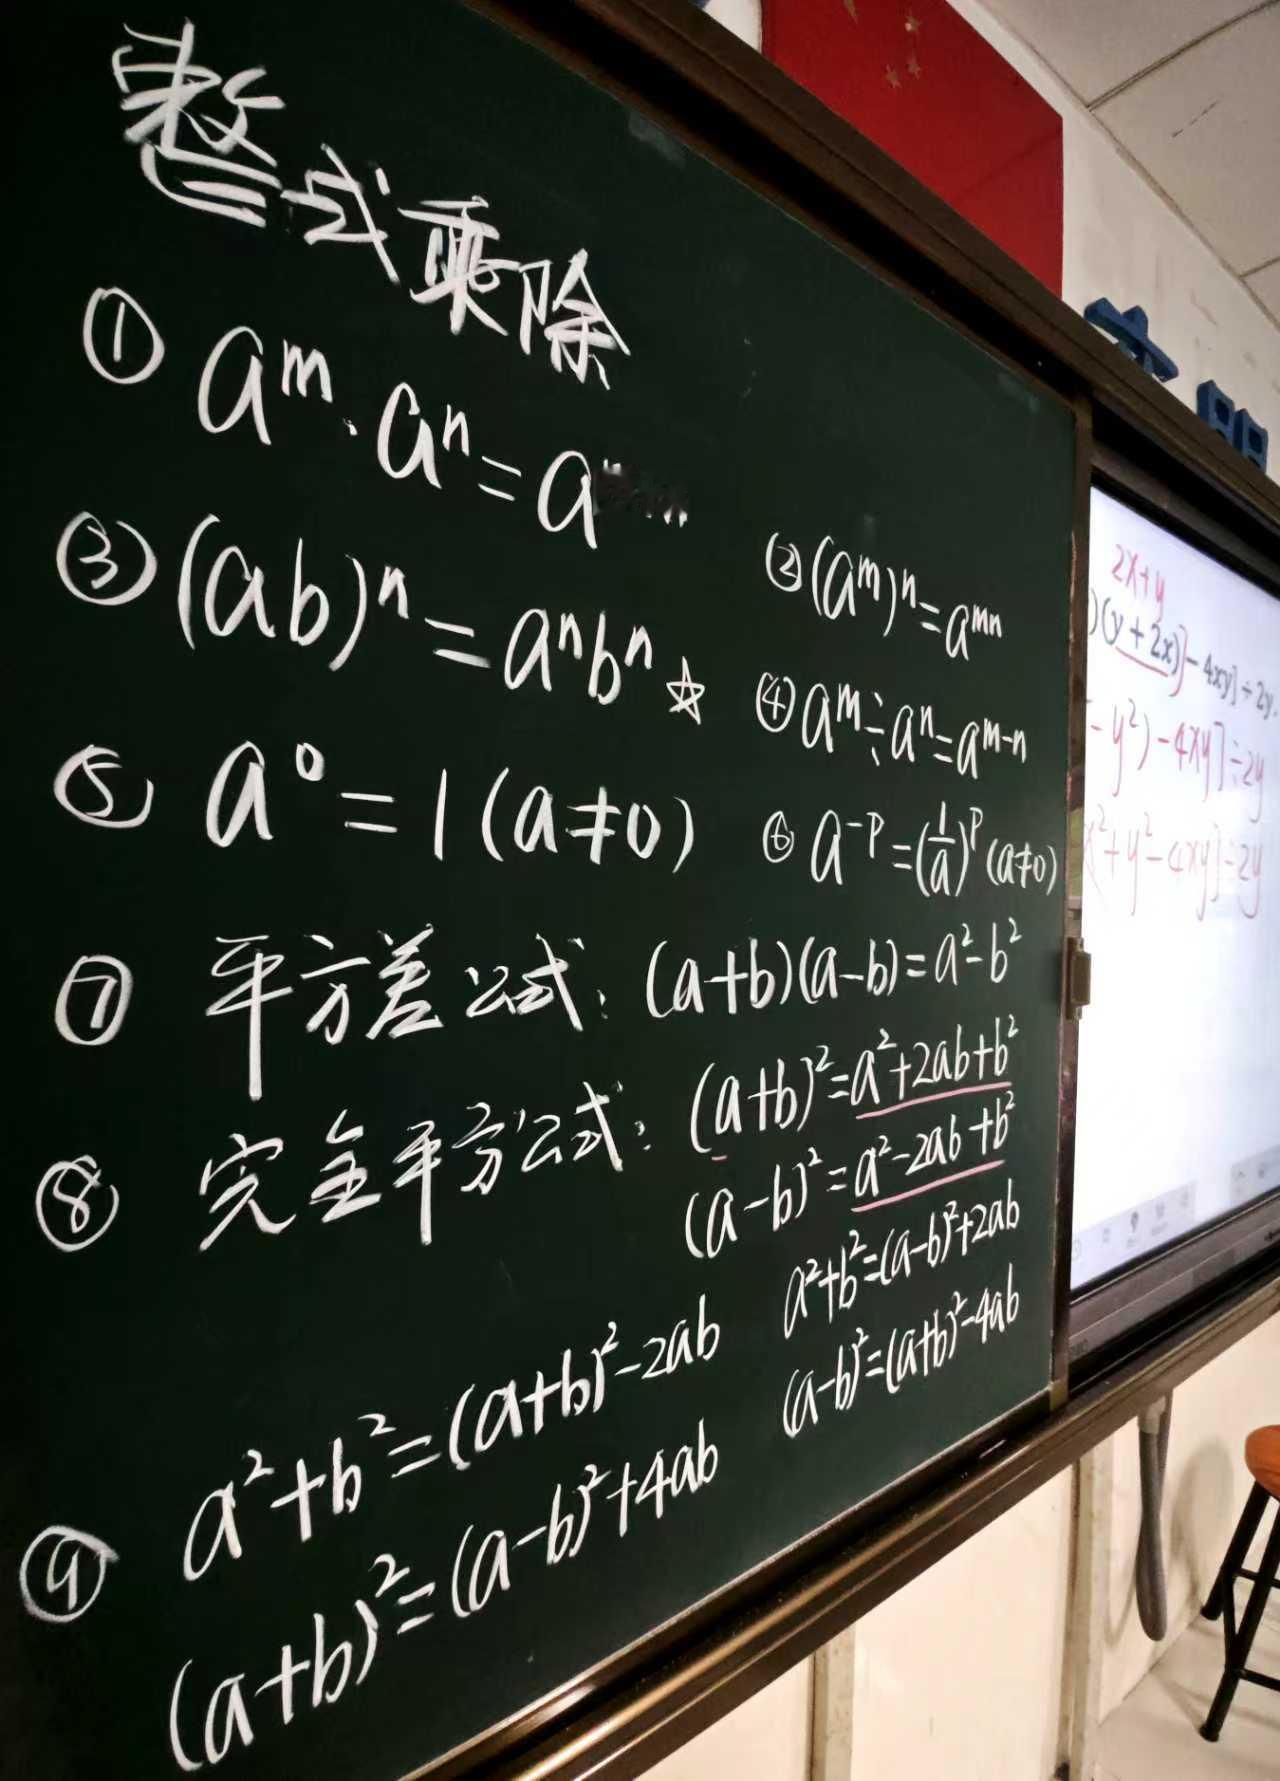 整式乘除
① aᵐ·aⁿ=a
② (aᵐ)ⁿ=aᵐⁿ
③ (ab)ⁿ=aⁿbⁿ ☆
④ aᵐ÷aⁿ=aᵐ⁻ⁿ
⑤ a⁰=1(a≠0)
⑥ a⁻ᵖ=(1/a)ᵖ(a≠0)
⑦ 平方差公式:(a+b)(a-b)=a²-b²
⑧ 完全平方公式:(a+b)²=a²+2ab+b²
(a-b)²=a²-2ab+b²
⑨ a²+b²=(a+b)²-2ab
a²+b²=(a-b)²+2ab
(a+b)²=(a-b)²+4ab
(a-b)²=(a+b)²-4ab
2x+y
)(y+2x)]-4xy]÷2y.
-y²)-4xy]÷2y
x²+y²-4xy]÷2y
明